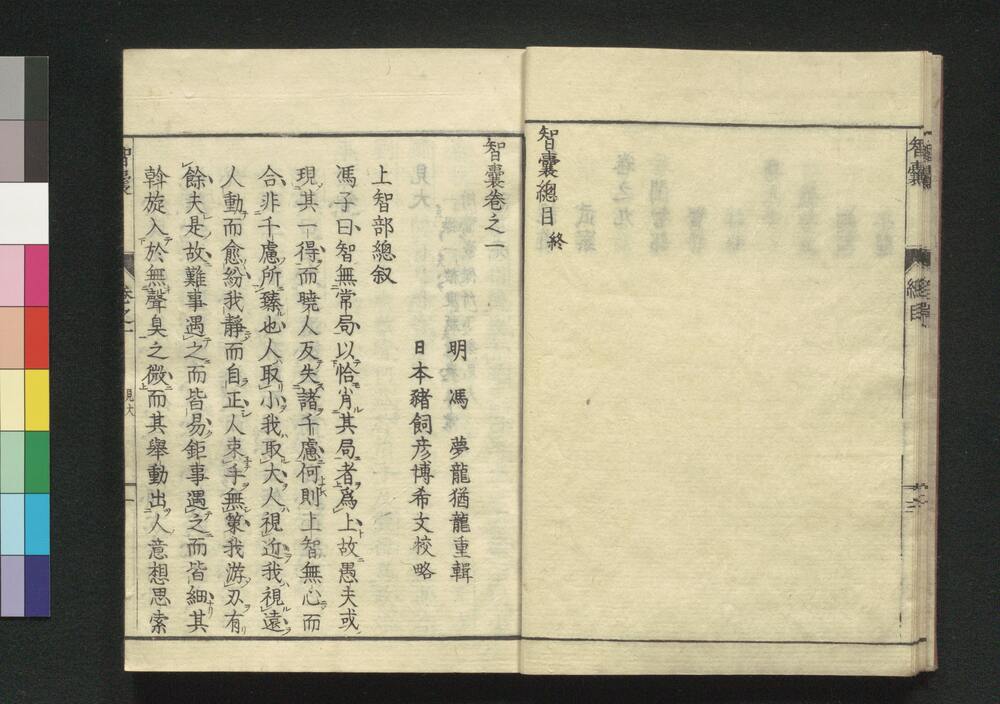 智囊
總目
智囊總目終
智囊卷之一
明馮夢龍猶龍重輯
日本豬飼彥博希文校略
上智部總叙
馮子曰智無常局以恰肖其局者爲上故愚夫或
現其一得而曉人反失諸千慮何則上智無心而
合非千慮所臻也人取小我取大人視近我視遠
人動而愈紛我靜而自正人束手無策我游刃有
餘夫是故難事遇之而皆易鉅事遇之而皆細其
斡旋入於無聲臭之微而其舉動出人意想思索
智囊
卷之一
見大
一